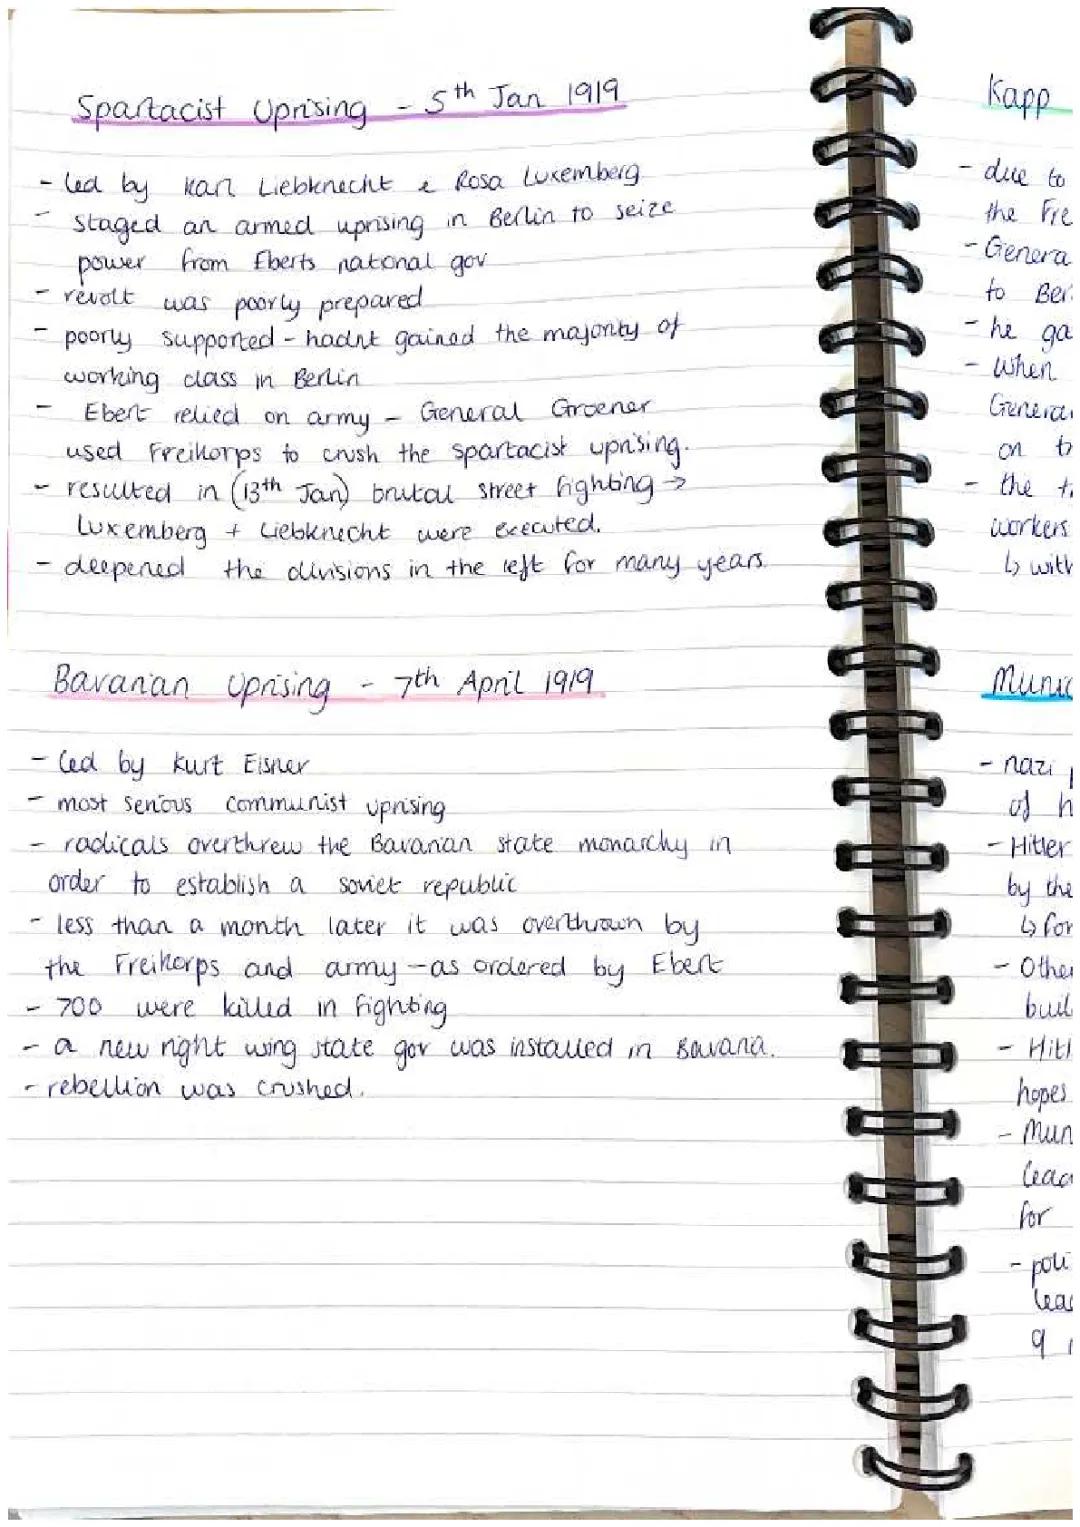 Spartacist Uprising - 5th Jan 1919
- led by Karl Liebknecht & Rosa Luxemberg
- staged an armed uprising in Berlin to seize
power from Eberts national gov
- revolt was poorly prepared
- poorly supported - hadnt gained the majority of
working class in Berlin
- Ebert relied on army - General Groener
used Freikorps to crush the spartacist uprising.
- resulted in (13th Jan) brutal street fighting →
Luxemberg + Liebknecht were executed.
- deepened the divisions in the left for many years.
Bavarian Uprising - 7th April 1919
- led by Kurt Eisner
- most serious communist uprising
- radicals overthrew the Bavarian state monarchy in
order to establish a soviet republic
- less than a month later it was overthrown by
the Freikorps and army - as ordered by Ebert
- 700 were killed in fighting
- a new right wing state gov was installed in Bavaria.
- rebellion was crushed.
Kapp
- due to
the Fre
- Genera
to Ber
- he ga
- when
Genera
on t
- the t
workers
↳ with
Munic
- nazi
of h
- Hitler
by the
↳ for
- Other
buil
- Hitl
hopes
- Mun
lead
for
- poli
lea
9